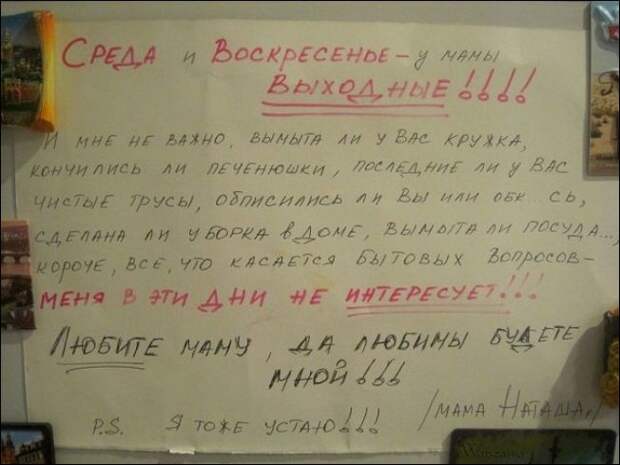 СРЕДА и ВОСКРЕСЕНЬЕ – У МАМЫ
ВЫХОДНЫЕ!!!!
И МНЕ НЕ ВАЖНО, ВЫМЫТА ЛИ У ВАС КРУЖКА,
КОНЧИЛИСЬ ЛИ ПЕЧЕНЮШКИ, ПОСЛЕДНИЕ ЛИ У ВАС
ЧИСТЫЕ ТРУСЫ, ОБПИСИЛИСЬ ЛИ ВЫ ИЛИ ОБК...СЬ,
СДЕЛАНА ЛИ УБОРКА В ДОМЕ, ВЫМЫТА ЛИ ПОСУДА...,
КОРОЧЕ, ВСЕ, ЧТО КАСАЕТСЯ БЫТОВЫХ ВОПРОСОВ–
МЕНЯ В ЭТИ ДНИ НЕ ИНТЕРЕСУЕТ!!!
ЛЮБИТЕ МАМУ, ДА ЛЮБИМЫ БУДЕТЕ
МНОЙ!!!
/МАМА НАТАША,/
P.S. Я ТОЖЕ УСТАЮ!!!